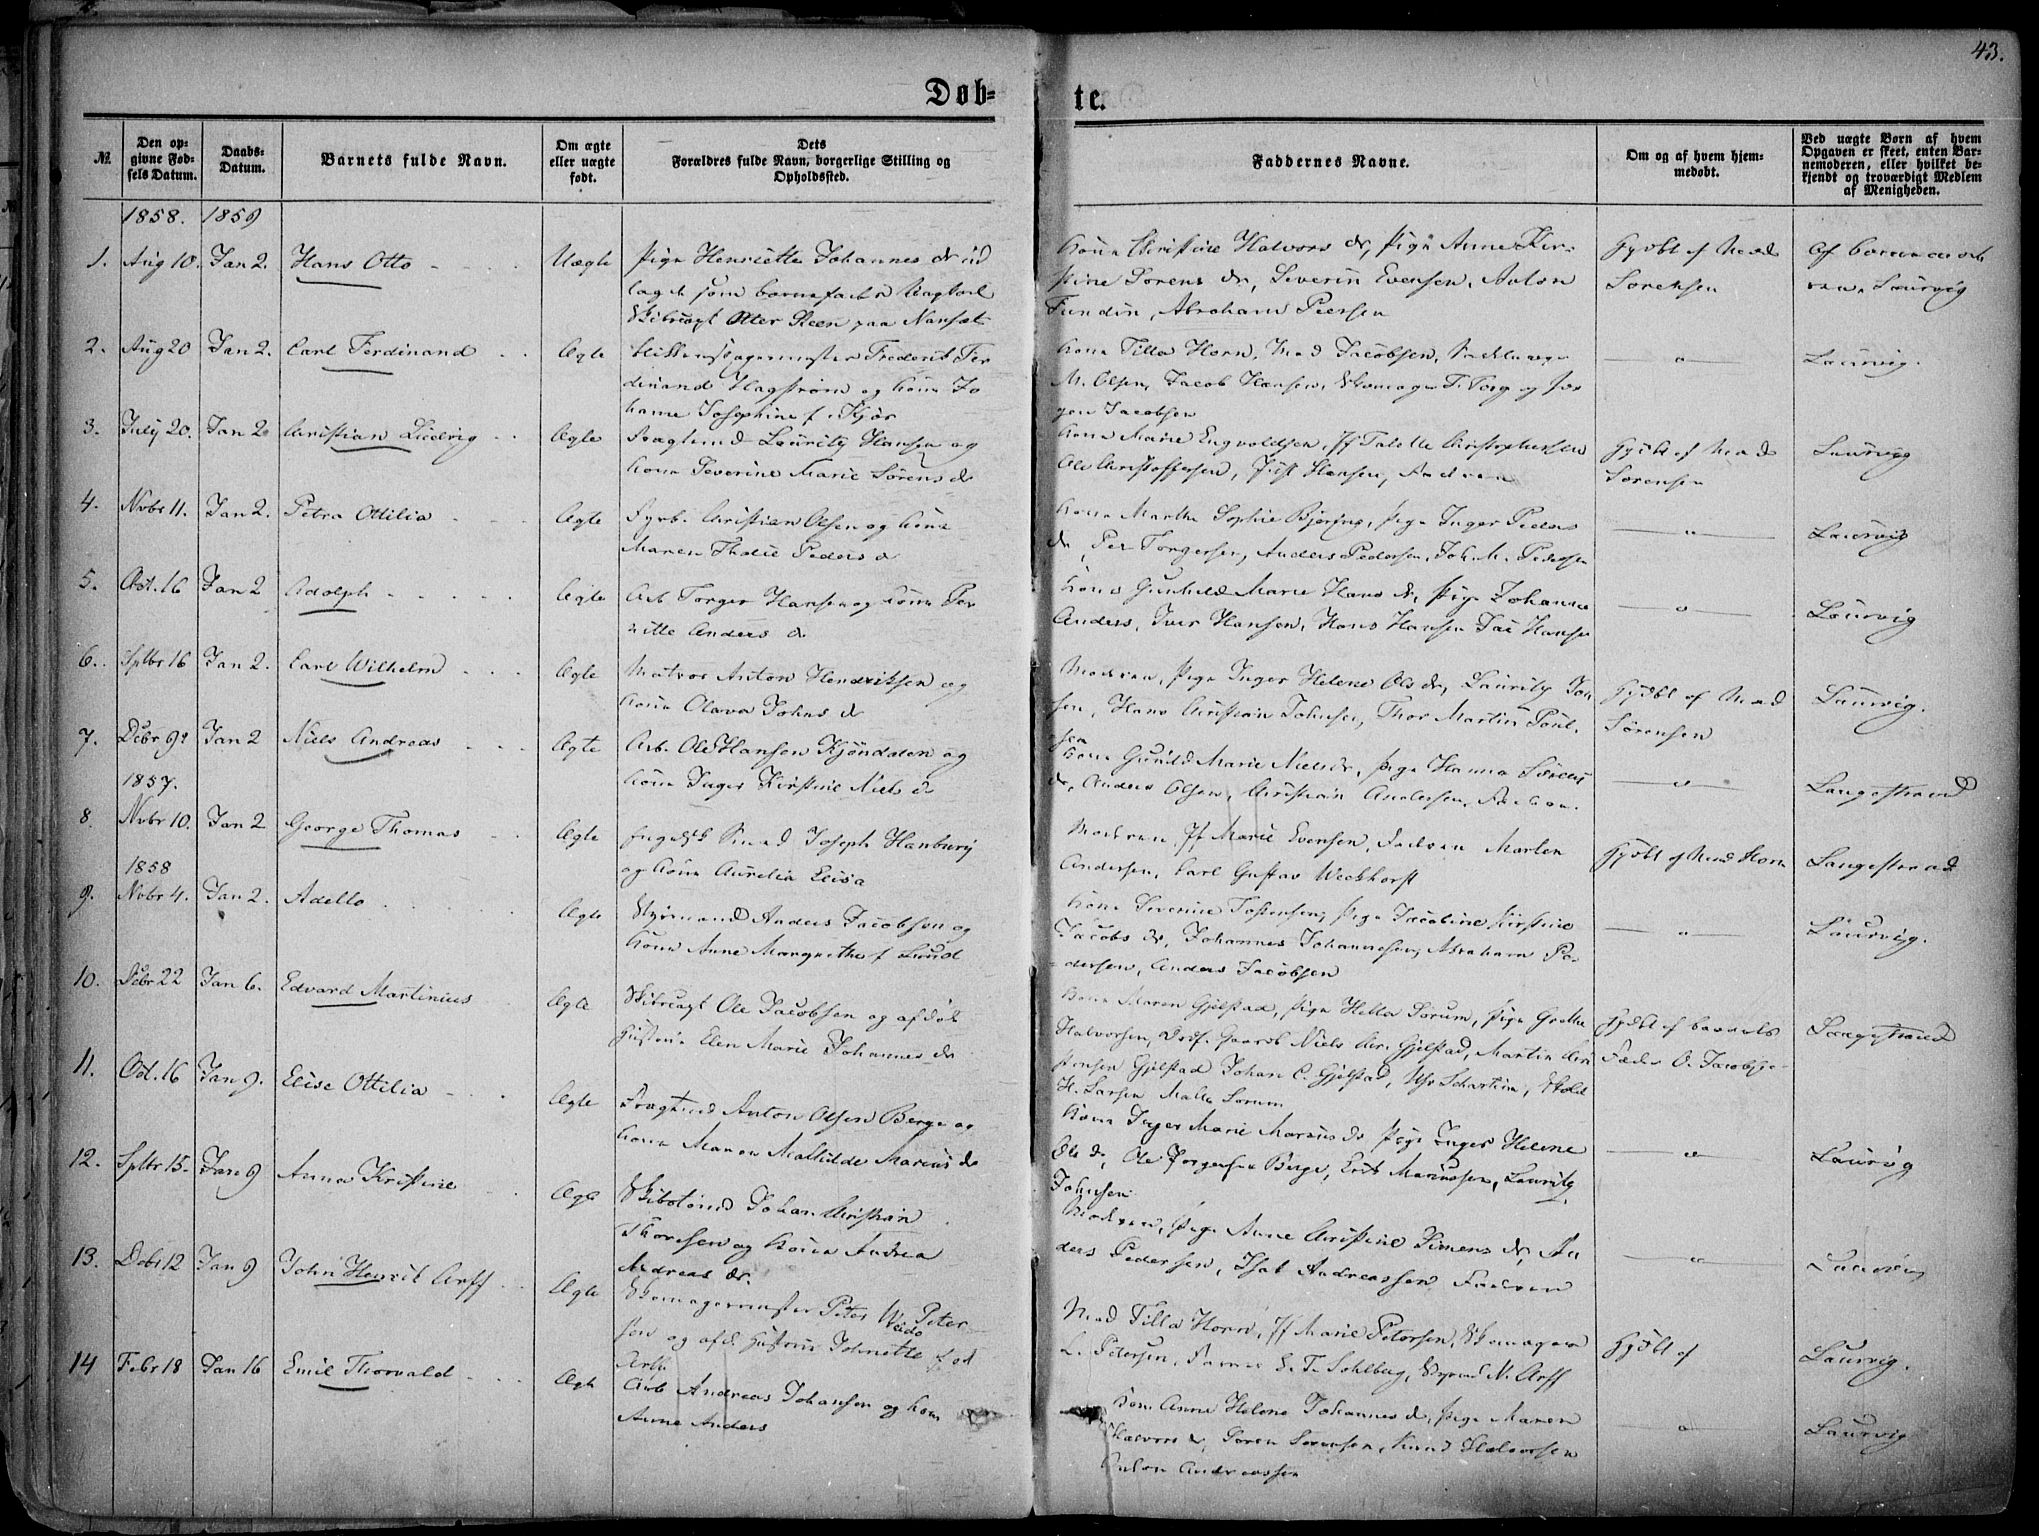 43.
Døb-
te.
№
Den op-
givne Fød-
sels Datum.
Daabs-
Datum.
Barnets fulde Navn.
Om ægte
eller uægte
født.
Dets
Forældres fulde Navn, borgerlige Stilling og
Opholdssted.
Faddernes Navne.
Om og af hvem hjem-
medøbt.
Ved uægte Børn af hvem
Opgaven er skeet, enten Bar-
nemoderen, eller hvilket be-
kjendt og troværdigt Medlem
af Menigheden.
1858. 1859
1. Aug 10. Jan 2. Hans Otto Uægte Pige Henriette Johannes dr ud
lagt som barnefader
Otter Steen paa Nanset
Kona Christine Halvors dr, Pige Anne Kir-
stine Sørens dr, Severin Evensen, Anton
Fundin, Abraham Peersen
Gjødt af Mad
Sørensen
af barnemode
ren. Laurvig
2. Aug 20 Jan 2. Carl Ferdinand Ægte Frederik Fer
dinand Hagstrøm og Kone Jo
hanne Josephine f. Kjør
Kone Tilla Horn, Mad Jacobsen,
M. Olsen, Jacob Hansen, Skomager T. Torg og Jør
gen Jacobsen
" Laurvig.
3. July 20. Jan 2 Christian Ludvig Ægte Lauritz Hansen og
Kone Severine Marie Sørens dr
Kone Marie Engvoldsen, Jf Christophersen
Ole Christoffersen, Hansen, Faderen
Gjødt af Mad
Sørensen
Laurvig
4. Novbr 11. Jan 2. Petra Ottilia Ægte Fyrb. Christian Olsen og Kone
Maren Peders d
Kone Marthe Sophie Bjerøng, Pige Inger Peders
dr, Per Torgersen, Anders Pedersen, Joh. M. Pedersen
" Laurvig
5. Oct. 16 Jan 2 Adolph Ægte Arb Torger Hansen og Kone Per
nille Anders dr
Kone Gunhild Marie Hans dr, Pige Johanne
Anders, Iver Hansen, Hans Hansen Hansen
" Laurvig
6. Sptbr 16 Jan 2. Carl Wilhelm Ægte Matros Anton Hendriksen og
Kone Olava Johns dr
Moderen, Pige Inger Helene Ols dr, Lauritz Jon
sen, Hans Christian Johnsen, Thor Martin Poul-
sen
Gjødt af Mad
Sørensen
Laurvig.
7. Debr 9 Jan 2 Niels Andreas Ægte Arb. Ole Hansen Kjøndalen og
Kone Inger Kirstine Niels dr
Kone Gunild Marie Niels dr, Pige Hanna Sørens
dr, Anders Olsen, Christian Andersen, Faderen.
" Langestrand
1857.
8. Novbr 10. Jan 2 George Thomas Ægte Engelsk Smed Joseph Hanbury
og Kone Aurelia Elisa
Moderen Jf Marie Evensen, Faderen Morten
Andersen, Carl Gustav Weckhorst
Gjødt af Mad Horn
Langestrand
1858
9. Novbr 4. Jan 2. Adelle Ægte Styrmand Anders Jacobsen og
Kone Anne Margrethe f Lund
Kone Severine Tostensen, Pige Jacobine Kirstine
Jacobs dr, Johannes Johannesen, Abraham Pe-
dersen, Anders Jacobsen
" Laurvig.
10. Debr 22 Jan 6. Edvard Martinius Ægte Ole Jacobsen og afdød
Hustru Elen Marie Johannes dr
Kone Maren Gjelstad, Pige Hella Sorum, Pige Grethe
Halvorsen, Niels Chr. Gjelstad, Martin Chri
stensen Gjelstad Johan C. Gjelstad,
H. Larsen Malla Sorum
Gjødt af barnets
Fader O. Jacobsen
Langestrand
11. Oct. 16 Jan 9. Elise Ottilia Ægte Anton Olsen Berge og
Kone Maren Mathilde Marius dr
Kone Inger Marie Marius dr Pige Inger Helene
Ols dr, Ole Jørgensen Berge, Erik Mariussen, Lauritz
Johnsen
" Laurvig
12. Sptbr 15. Jan 9 Anna Kristine Ægte Johan Christian
Thoresen og Kone Andrea
Andreas dr.
Moderen, Pige Anne Christine Simens dr, An
ders Pedersen, Isak Andreassen Faderen
" Laurvig
13. Debr 12 Jan 9 John Henrik Arff Ægte Skomagermester Peter Weide Peter-
sen og afd. Hustru Johnette født
Arff
Mad Tilla Horn, Jf Marie Petersen, Skomager
L. Petersen, T. Sohlberg, N. Arff
Gjødt af
Laurvig.
14 Febr 18 Jan 16 Emil Thorvald Ægte Arb Andreas Johansen og Kone
Anne Anders
Kone Anne Helene Johannes dr, Pige Maren
Halvors dr, Søren Sørensen, Knud Halvorsen
Anton Andreassen
" Laurvig